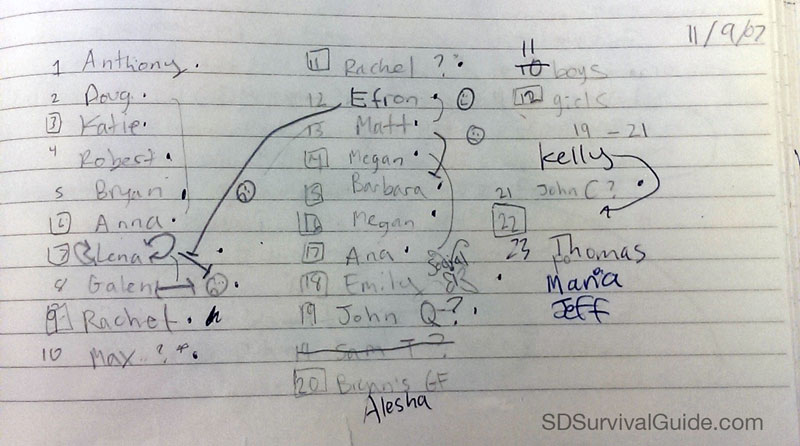 11/9/07
1 Anthony
2 Doug
3 Katie
4 Robert
5 Bryan
6 Anna
7 Elena
8 Galen
9 Rachel
10 Max ?
11 Rachel ?
12 Efron
13 Matt
14 Megan
15 Barbara
16 Megan
17 Ana
18 Emily
19 John Q?
19 Sam T?
20 Bryan's GF
Alesha
11
10 boys
12 girls
19 - 21
Kelly
21 John C?
22
23 Thomas
Maria
Jeff
SDSurvivalGuide.com